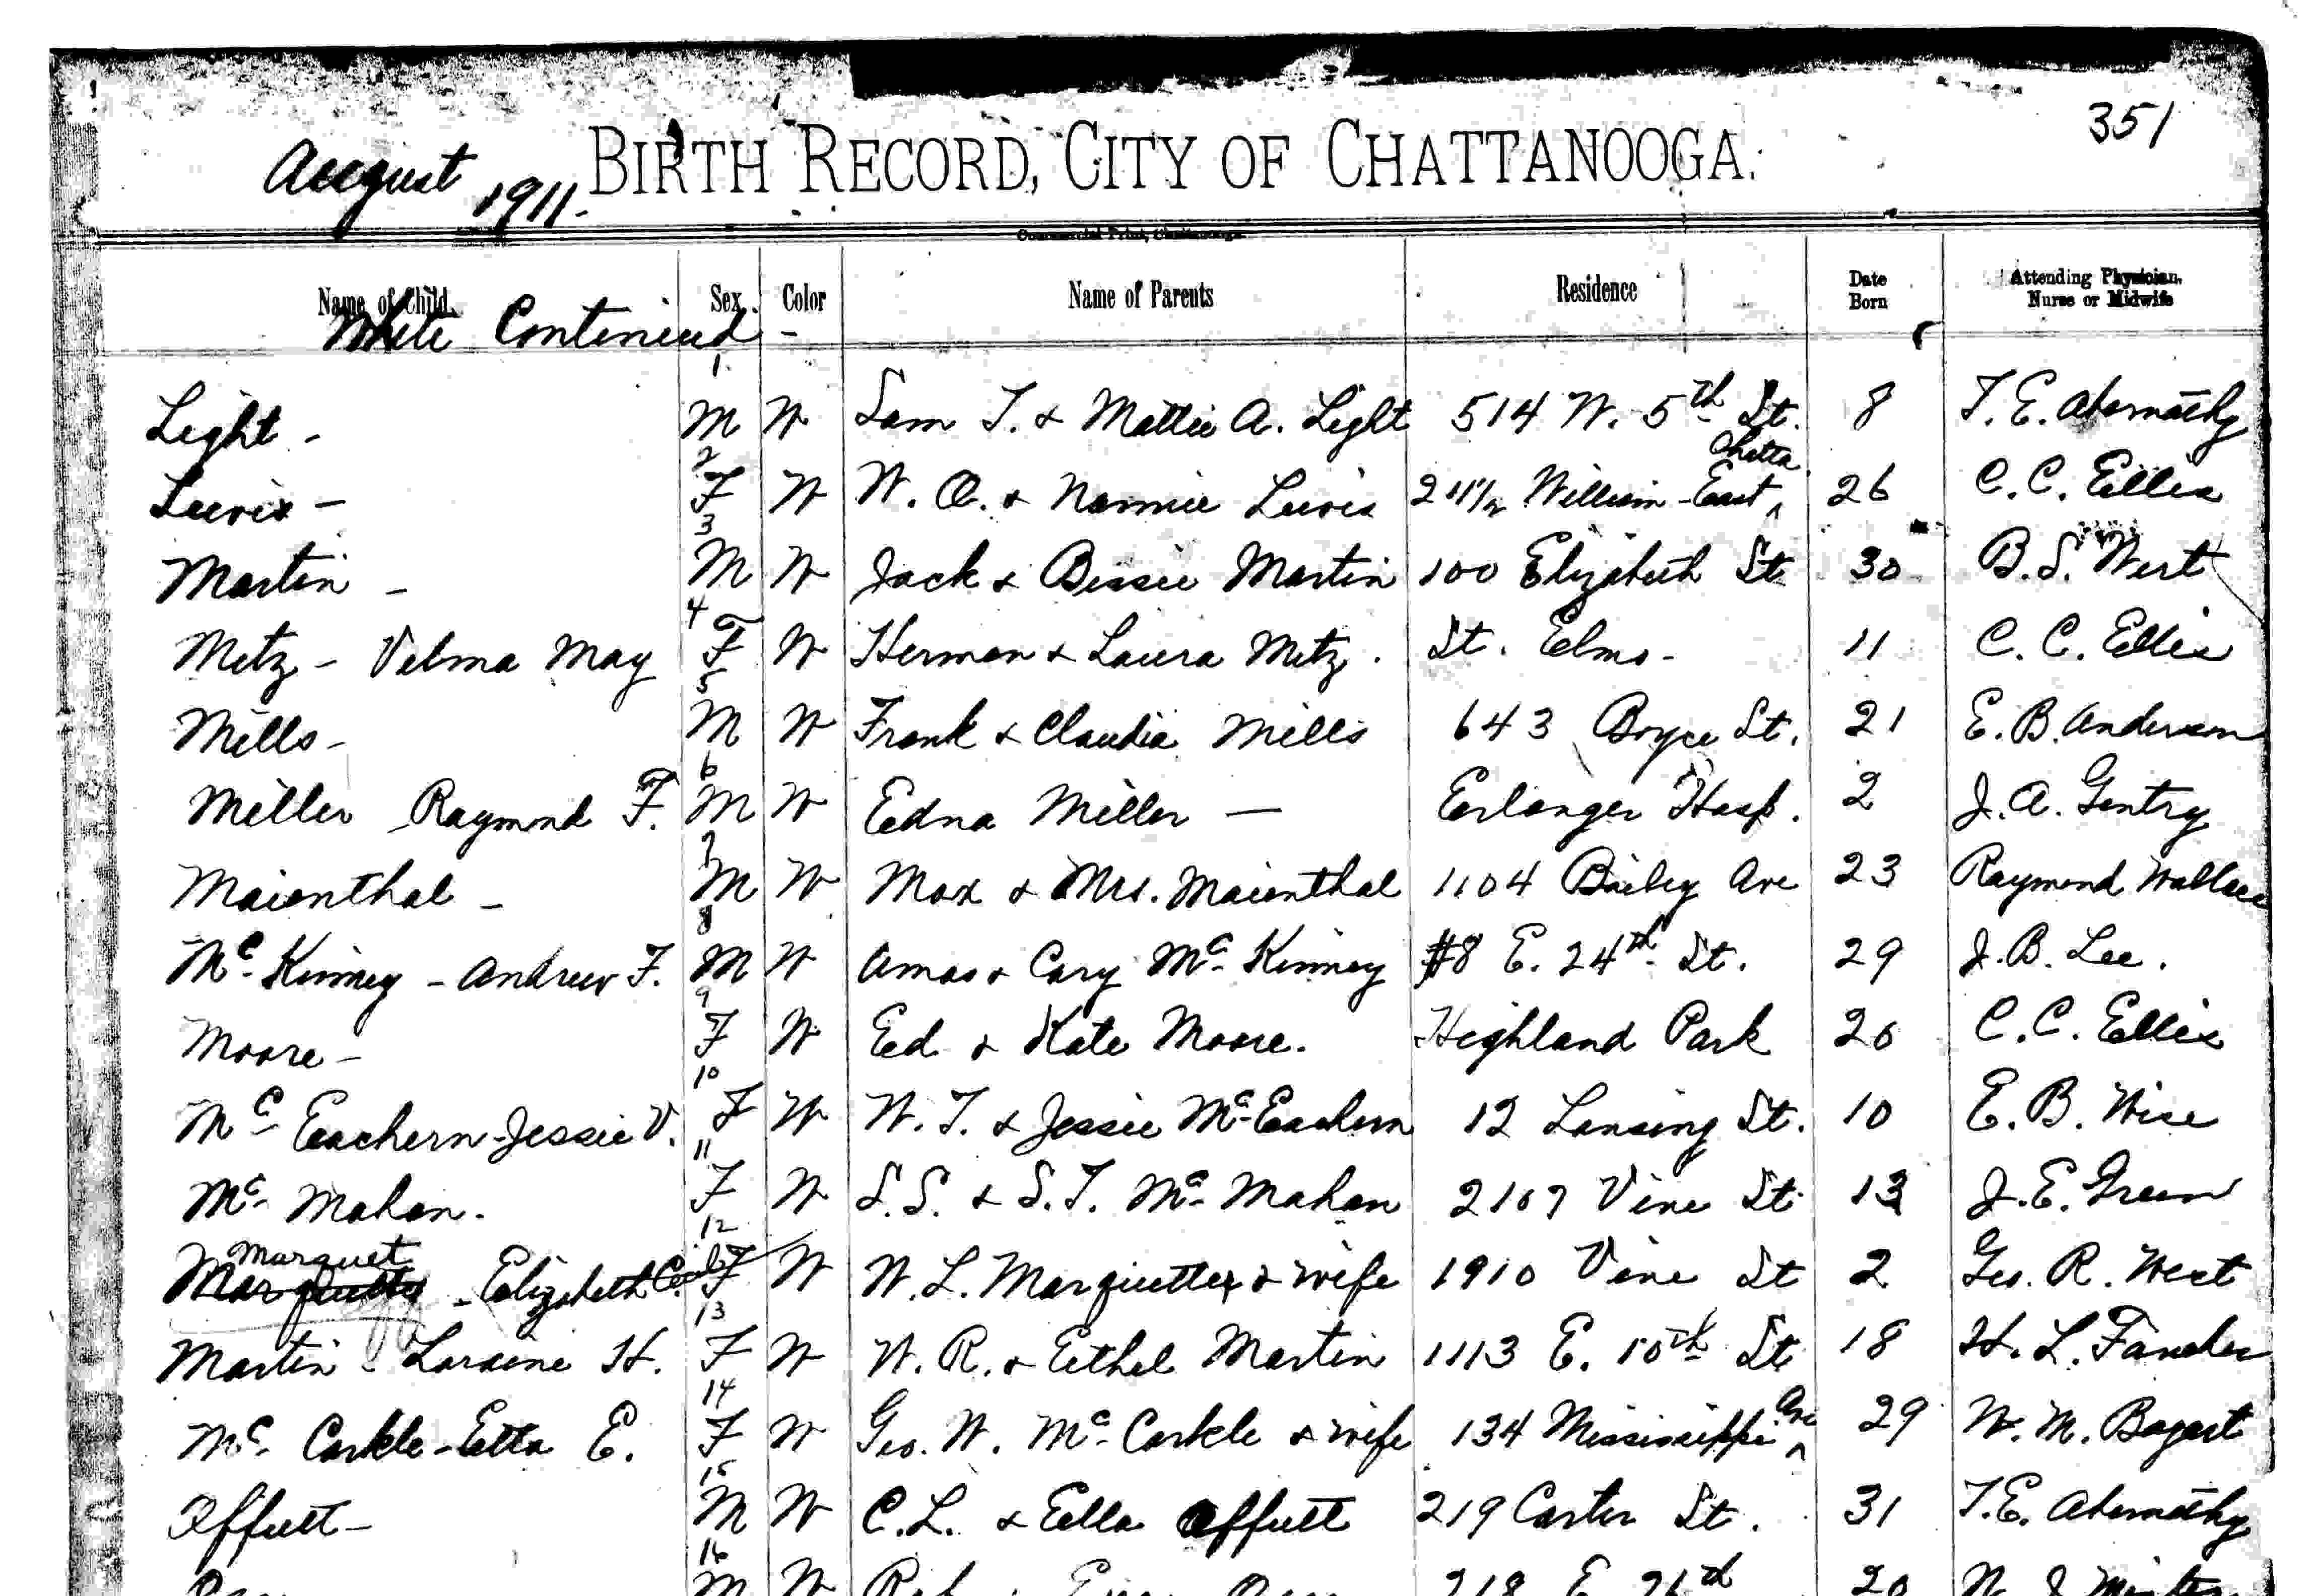 351
August 1911. BIRTH RECORD, CITY OF CHATTANOOGA.
Commercial Print, Chattanooga.
Name of Child. Sex. Color Name of Parents Residence Date Born Attending Physician, Nurse or Midwife
White Continued -
1. Light - M W Sam T. & Mattie A. Light 514 W. 5th St. 8 T. E. Abernathy
2 Lewis - F W W. O. & Nannie Lewis William - East Chatta. 26 C. C. Ellis
3 Martin - M W Jack & Bessie Martin 100 Elizabeth St. 30 B. S. Wert
4 Metz - Velma May F W Herman & Laura Metz. St. Elmo - 11 C. C. Ellis
5 Mills - M W Frank & Claudia Mills 643 Boyce St. 21 E. B. Anderson
6 Miller Raymond F. M W Edna Miller — Erlanger Hosp. 2 J. A. Gentry
7 Maienthal - M W Max & Mrs. Maienthal 1104 Bailey Ave 23 Raymond Wallace
8 Mc Kinney - Andrew F. M W Amos & Cary Mc Kinney #8 E. 24th St. 29 J. B. Lee.
9 Moore - F W Ed & Kate Moore. Highland Park 26 C. C. Ellis
10 Mc Eachern - Jessie V. F W W. T. & Jessie Mc Eachern 12 Lansing St. 10 E. B. Wise
11 Mc Mahan. F W S. S. & S. T. Mc Mahan 2107 Vine St. 13 J. E. Green
12 Marquet - Elizabeth F W W. L. Marquette & wife 1910 Vine St 2 Geo. R. West
13 Martin - Loraine H. F W W. R. & Ethel Martin 1113 E. 10th St. 18 H. L. Fancher
14 Mc Corkle - Etta E. F W Geo. W. Mc Corkle & wife 134 Mississippi Ave 29 W. M. Bogart
15 Offutt - M W C. L. & Ella Offutt 219 Carter St. 31 T. E. Abernathy
16 M W 218 E. 26th 20